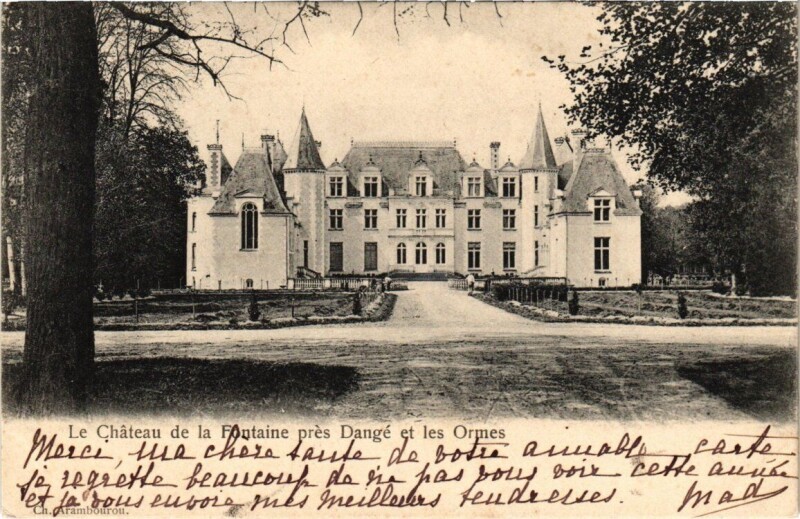 Le Château de la Fontaine près Dangé et les Ormes
Merci, ma chère tante de votre aimable carte
je regrette beaucoup de ne pas vous voir cette année
et je vous envoie mes meilleurs tendresses. Mad
Ch. Arambourou.